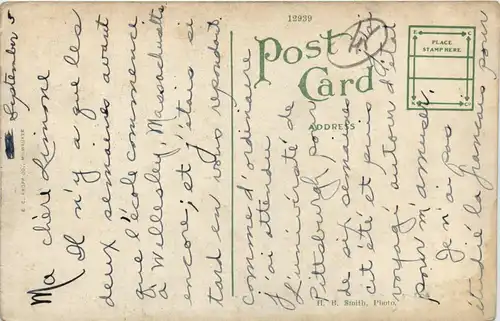 12939
POST CARD
PLACE
STAMP HERE.
ADDRESS
H. H. Smith, Photo.
September 5
Ma chère Simone
Il n'y a que les
deux semaines avant
que l'école commence
à Wellesley, Massachusetts
encore; et j'étais si
tard en vous repondant
comme d'ordinaire
j'ai attendu
L'université de
Pittsburgh, pour
de six semaines
cet été et puis
voyagé autour d'
pour m'amuser.
Je n'ai pas
étudié le français pour